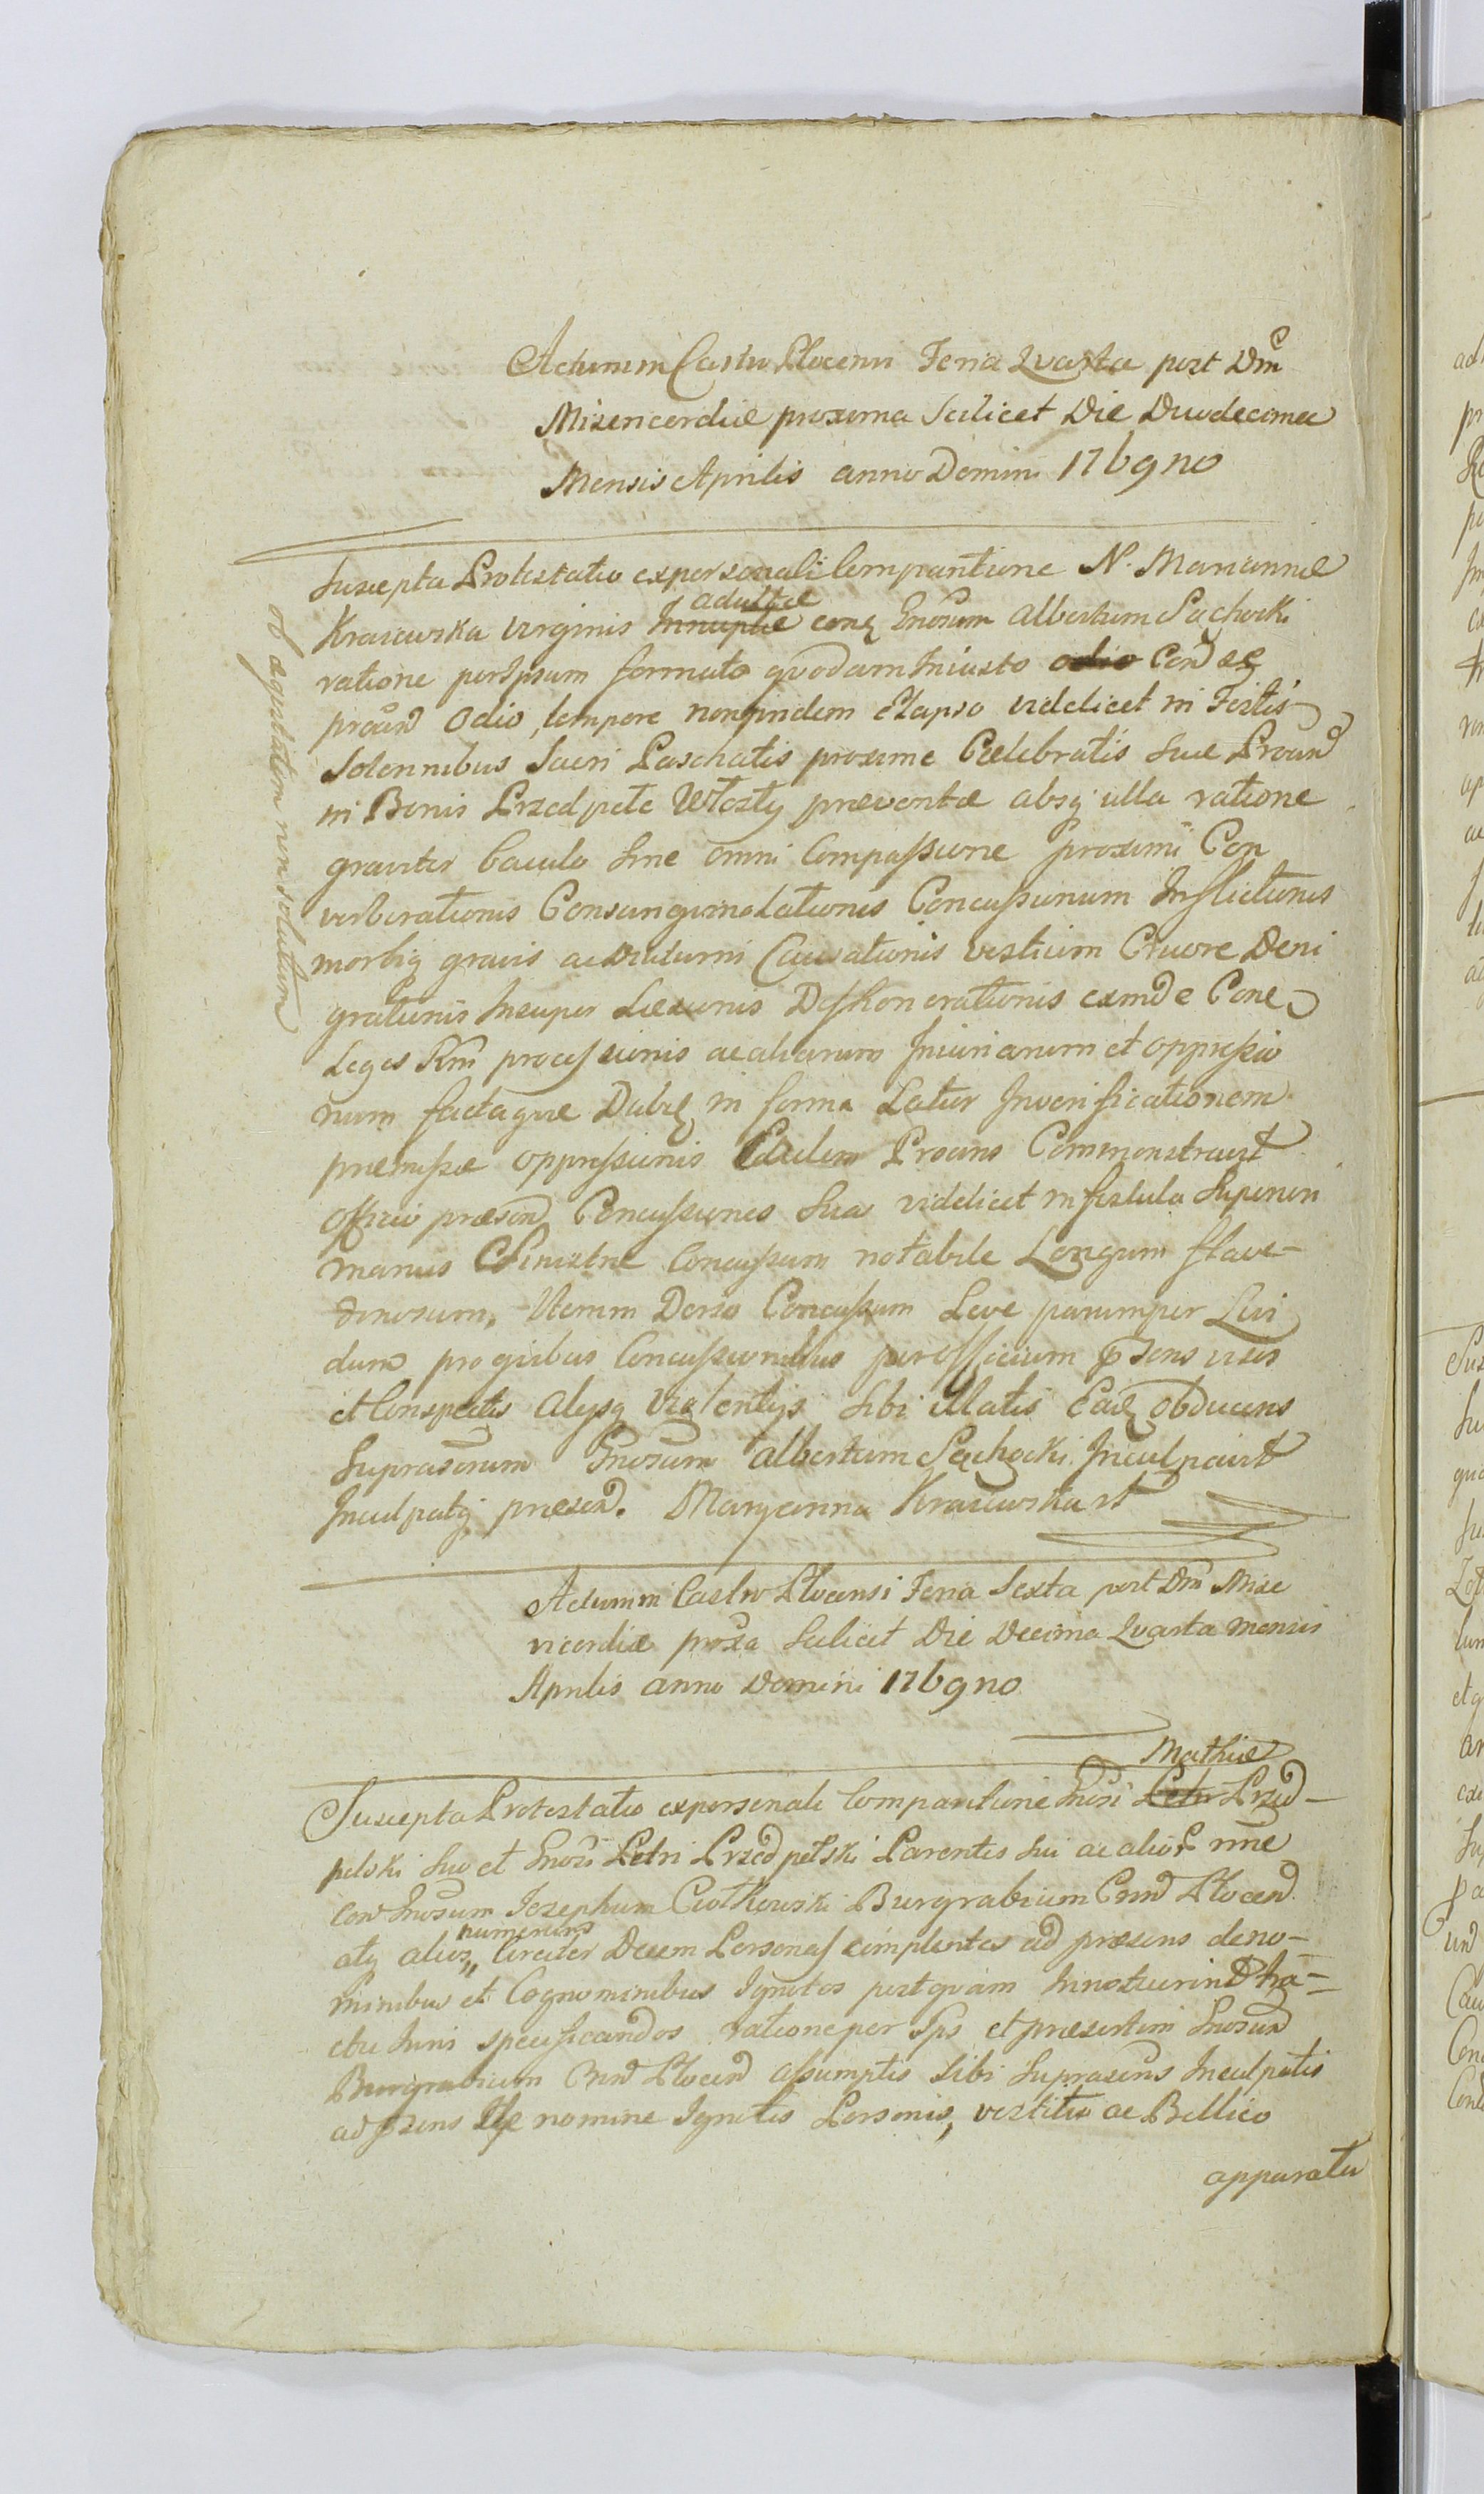 Actum in Castro Plocensi Feria Qvarta post Dm̃
Misericordiæ proxima Scilicet Die Duodecima
Mensis Aprilis anno Domini 1769no
Suscepta Protestatio ex personali Comparitione N. Mariannæ
adultæ
Krasewska virginis Innuptæ conq Gnosum Albertum Sąchocki
ratione per Ipsum formato qvodam Iniusto odio Cond se
proãnd Odio, tempore non pridem elapso videlicet in Festis
Solennibus Sacri Paschatis proxime Celebratis Suæ Proand
in Bonis Przedpełe Włosty præventæ absq ulla ratione
graviter baculo sine omni Compassione proximi Con
verberationis Consangvinolationis Concussionum Inflictionis
morbiq gravis ac diuturni Causationis vestium Cruore Deni
grationis Insuper Læsionis Dishonorationis eamde Cone
Leges Rñi processionis ac aliarum Iniuriarum et oppressio
num factaque Dubq in forma Latur Inverificationem
præmissæ oppressionis Eadem Proãns Commonstravit
Officio præsen Concussiones Suas videlicet in festula Superiori
manus Sinistræ Concussum notabile Longum flave-
dinosum, Item in Dorso Concussum Leve parumper Livi
dum pro qvibus Concussionibus per officium psens visis
et Conspectis alysq violentijs sibi illatis Eadq obducens
Suprascrum Gnosum Albertum Sąchocki Inculpavit
Inculpatq præsen. Maryanna Krasewska st
ob egestatem non solutum
Actum in Castro Plocensi Feria Sexta post Dm̃ Mise
ricordiæ proxa Scilicet Die Decima Qvarta mensis
Aprilis anno Domini 1769no
Mathiæ
Suscepta Protestatio ex personali Comparitione Gnosi Petri Przed-
pelski suo et Gnosi Petri Przedpełski Parentis sui ac alior nñe
con Gnosum Iozephum Ciołkowski Burgrabium Cnnd Plocen
numerum
atq alios,, circiter Decem Personas complentes ad præsens de no-
minibus et Cognominibus Ignotos postqvam Innotuerint tra-
ctu Iuris specificandos ratione per Ips et præsertim Gnosum
Burgrabium Cnnd Plocen assumptis sibi Suprascris Inculpatis
ad psens de nomine Ignotis Personis, vestitu ac Bellico
apparatu